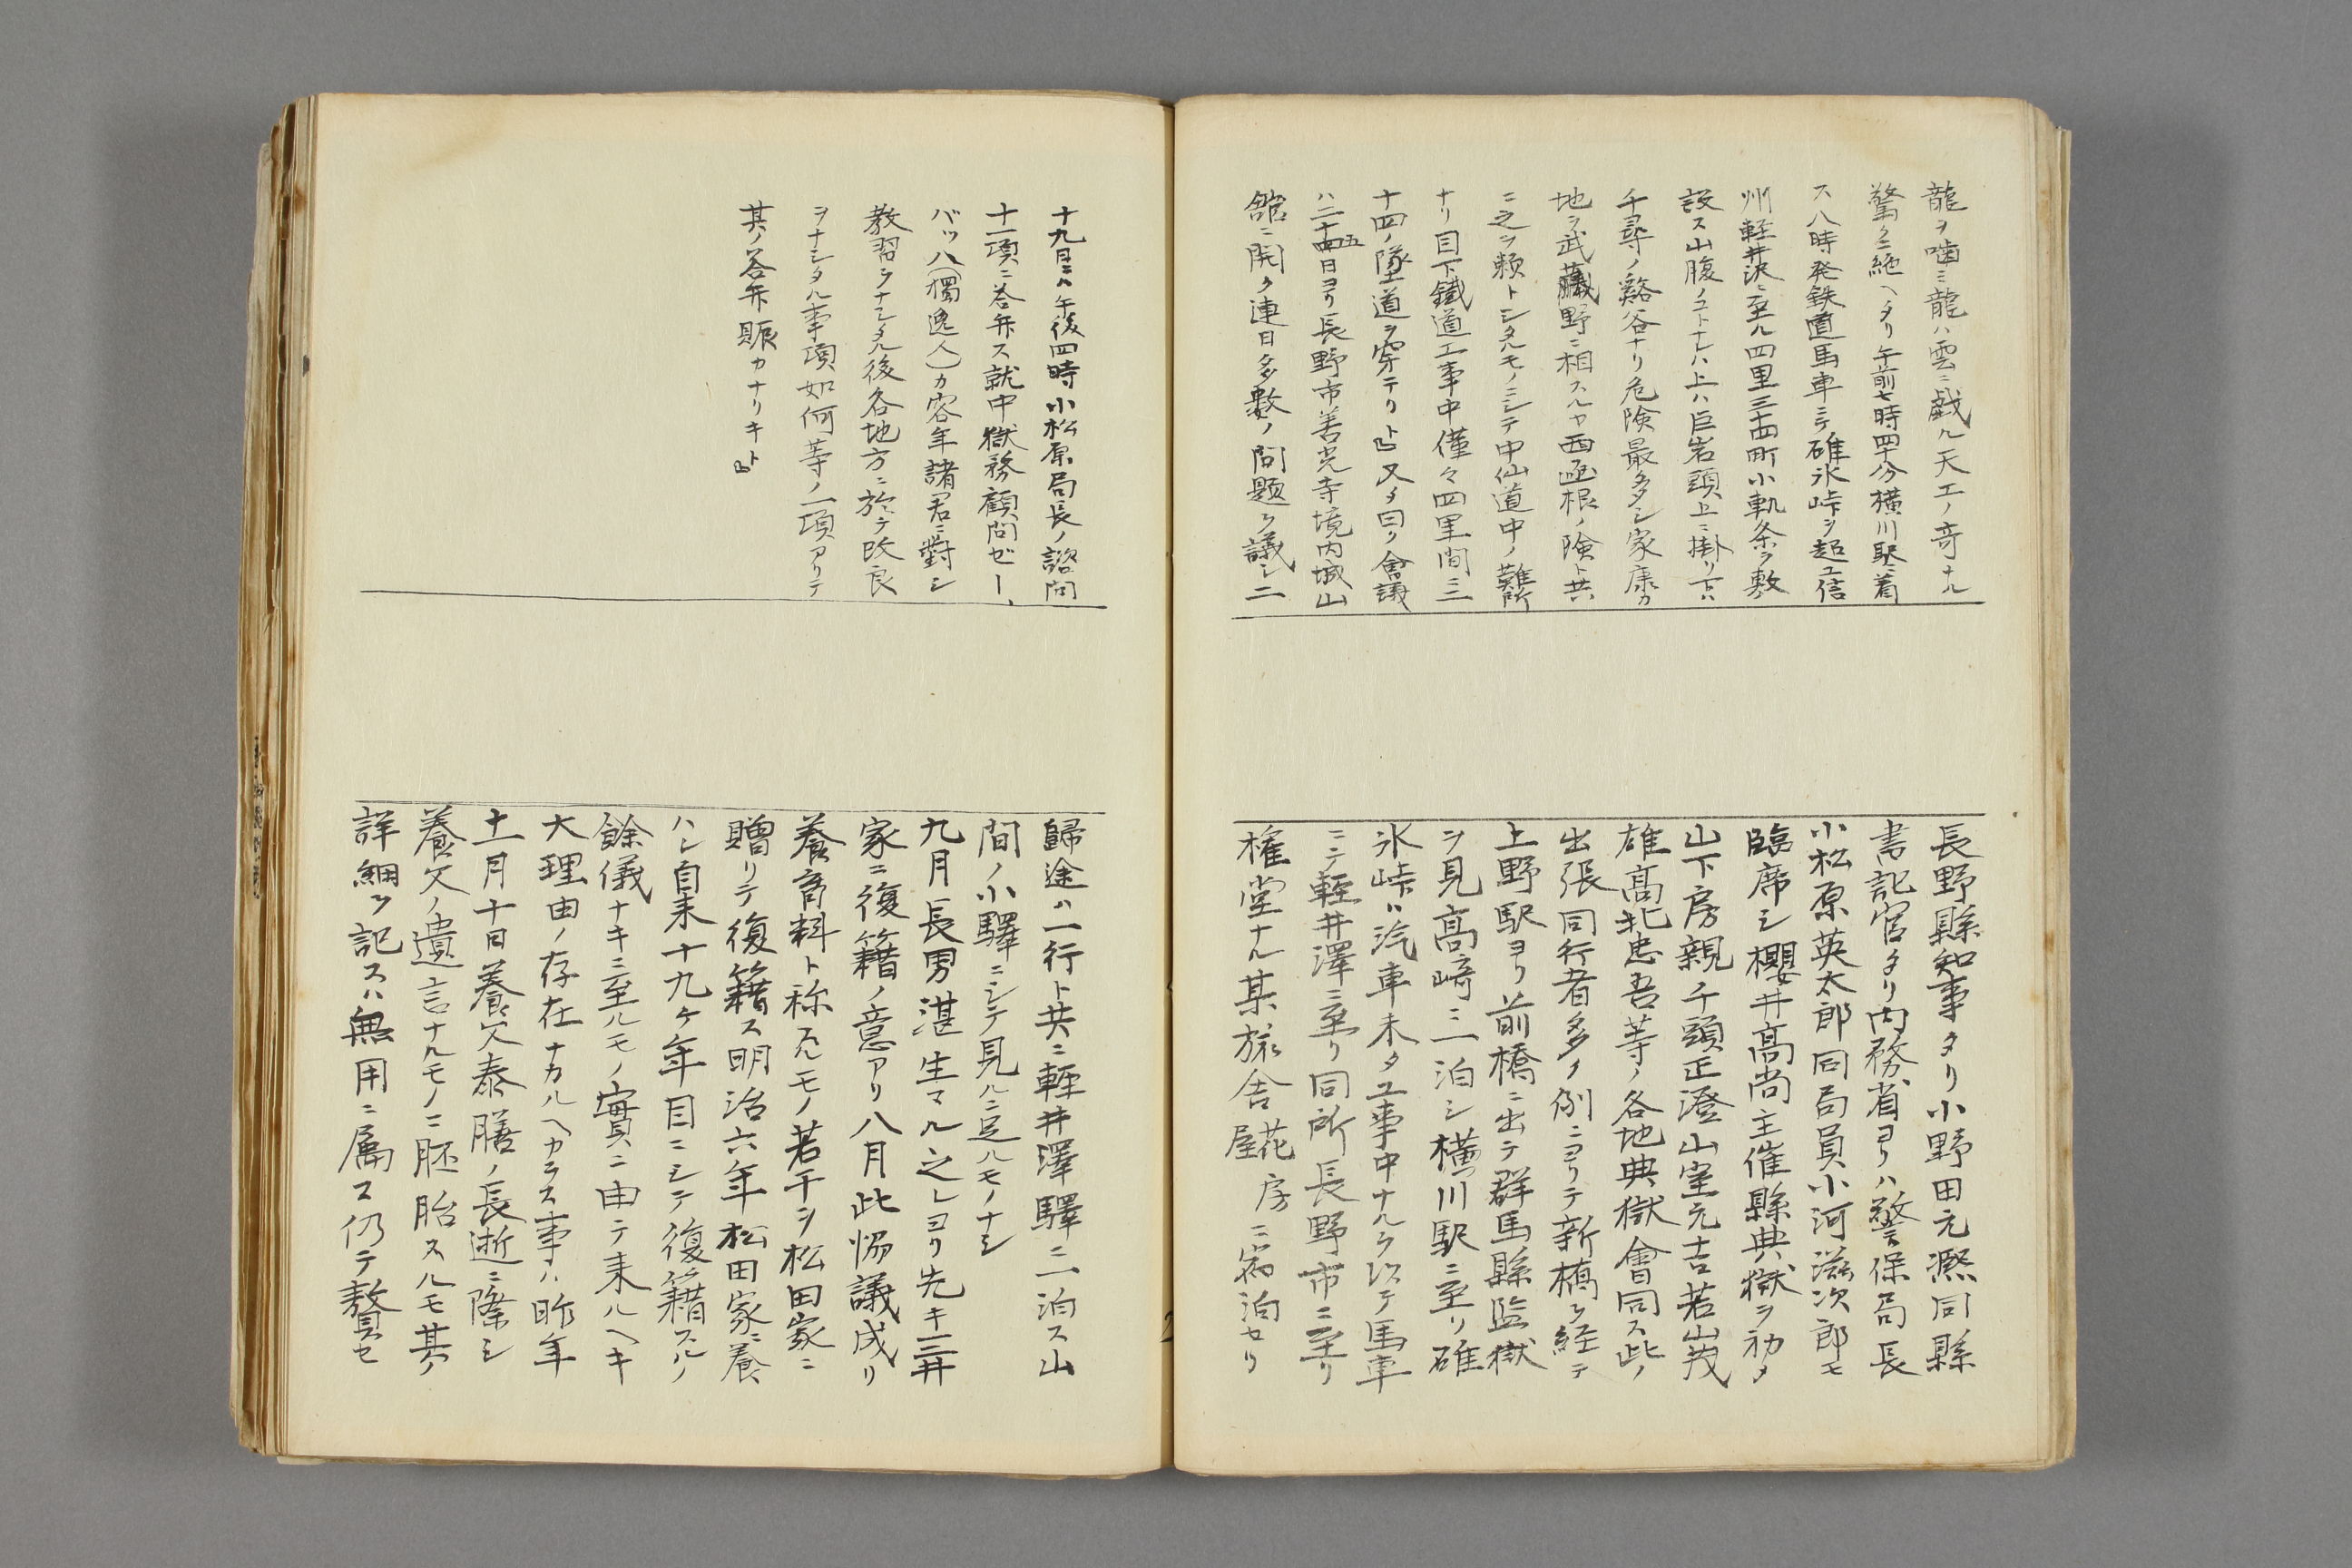 龍ヲ噛ミ龍ハ雲ニ戯ル天工ノ奇ナル
驚クニ絶ヘタリ午前七時四十分横川駅ニ着
ス八時発鉄道馬車ニテ碓氷峠ヲ超エ信
州軽井沢ニ至ル四里三十四町小軌条ヲ敷
設ス山腹ノコトナレハ上ハ巨岩頭上ニ掛リ下ハ
千尋ノ谿谷ナリ危険最多シ家康カ
地ヲ武藏野ニ相スルヤ西函根ノ険ト共
ニ之ヲ頼トシタルモノニシテ中仙道中ノ難所
ナリ目下鐵道工事中僅々四里間ニ三
十四ノ墜道ヲ穿テリト又タ曰ク會議
ハ二十五日ヨリ長野市善光寺境内城山
舘ニ開ク連日多数ノ問題ヲ議シ二
長野縣知事タリ小野田元凞同縣
書記官タリ内務省ヨリハ警保局長
小松原英太郎同局員小河滋次郎モ
臨席シ櫻井高尚主催縣典獄ヲ初メ
山下房親千頭正澄山室元吉若山茂
雄高北忠吾等ノ各地典獄會同ス此ノ
出張同行者多ク例ニヨリテ新橋ヲ経テ
上野駅ヨリ前橋ニ出テ群馬縣監獄
ヲ見高﨑ニ一泊シ横川駅ニ至リ碓
氷峠ハ汽車未タ工事中ナルヲ以テ馬車
ニテ軽井澤ニ至リ同所長野市ニ至リ
権堂ナル某旅舎花屋房ニ宿泊セリ
十九日ニハ午後四時小松原局長ノ諮問
十一項ニ答弁ス就中獄務顧問ゼー、
バッハ(獨逸人)カ客年諸君ニ對シ
教習ヲナシタル後各地方ニ於テ改良
ヲナシタル事項如何等ノ一項アリテ
其ノ答弁賑カナリキト
歸途ハ一行ト共ニ軽井澤驛ニ一泊ス山
間ノ小驛ニシテ見ルニ足ルモノナシ
九月長男湛生マル之レヨリ先キ三井
家ニ復籍ノ意アリ八月此協議成リ
養育料ト称スルモノ若干ヲ松田家ニ
贈リテ復籍ス明治六年松田家ニ養
ハレ自来十九ヶ年目ニシテ復籍スルノ
餘儀ナキニ至ルモノ實ニ由テ来ルヘキ
大理由ノ存在ナカルヘカラス事ハ昨年
十一月十日養父泰膳ノ長逝ニ際シ
養父ノ遺言ナルモノニ胚胎スルモ其ノ
詳細ヲ記スハ無用ニ属ス仍テ贅セ